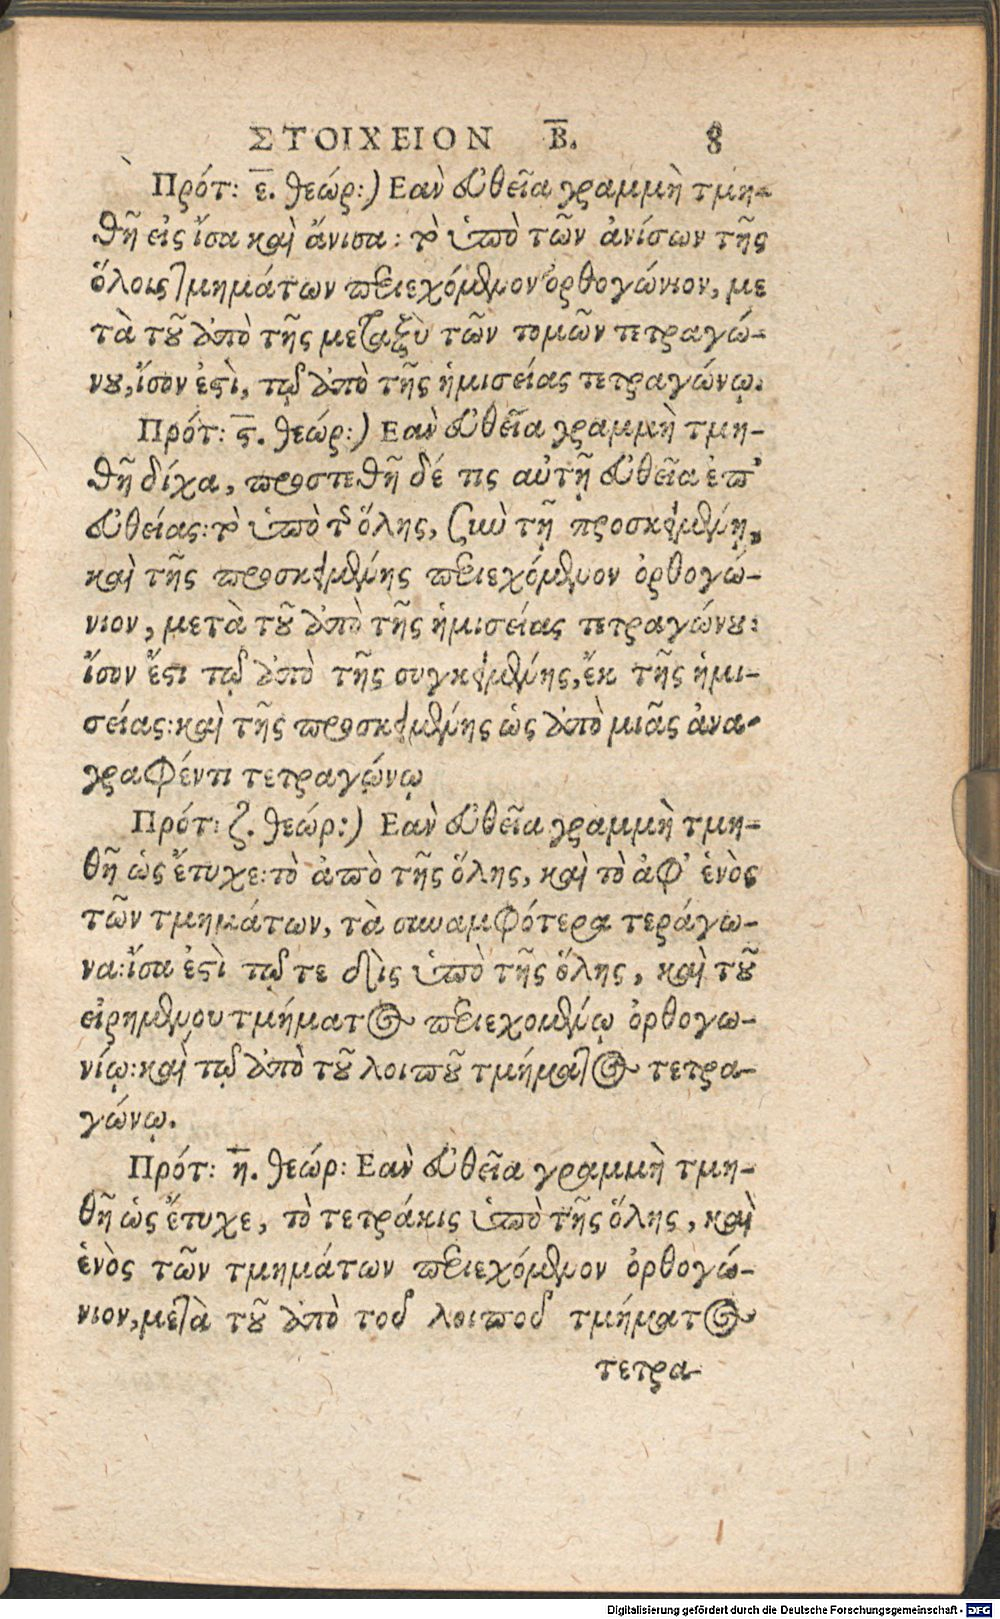 ΣΤΟΙΧΕΙΟΝ Β̅. 8
Πρότ: ε̅. θεώρ:) Εαν ευθεῖα γραμμὴ τμη-
θῆ εἰς ἴσα καὶ ἄνισα: τὸ ὑπὸ τῶν ἀνίσων τῆς
ὅλοις τμημάτων περιεχόμενον ὀρθογώνιον, με
τὰ τοῦ ἀπὸ τῆς μεταξὺ τῶν τομῶν τετραγώ-
νου, ἴσον ἐστὶ, τῷ ἀπὸ τῆς ἡμισείας τετραγώνῳ.
Πρότ: ϛ̅. θεώρ:) Εὰν εὐθεῖα γραμμὴ τμη-
θῆ δίχα, προστεθῆ δέ τις αὐτῇ εὐθεῖα ἐπ’
εὐθείας: τὸ ὑπὸ τῆς ὅλης, σὺν τῇ προσκειμένῃ,
καὶ τῆς προσκειμένης περιεχόμενον ὀρθογώ-
νιον, μετὰ τοῦ ἀπὸ τῆς ἡμισείας τετραγώνου:
ἴσον ἔστι τῷ ἀπὸ τῆς συγκειμένης, ἔκ τῆς ἡμι-
σείας: καὶ τῆς προσκειμένης ὡς ἀπὸ μιᾶς ἀνα-
γραφέντι τετραγώνῳ
Πρότ: ζ. θεώρ:) Εὰν εὐθεῖα γραμμὴ τμη-
θῆ ὡς ἔτυχε: τὸ ἀπὸ τῆς ὅλης, καὶ τὸ ἀφ’ ἑνὸς
τῶν τμημάτων, τὰ συναμφότερα τεράγω-
να: ἴσα ἐστὶ τῷ τε δὶς ὑπὸ τῆς ὅλης, καὶ τοῦ
εἰρημένου τμήματος περιεχομένῳ ὀρθογω-
νίῳ: καὶ τῷ ἀπὸ τοῦ λοιποῦ τμήματος τετρα-
γώνῳ.
Πρότ: η̅. θεώρ: Εὰν εὐθεῖα γραμμὴ τμη-
θῆ ὡς ἔτυχε, τὸ τετράκις ὑπὸ τῆς ὅλης, καὶ
ἑνὸς τῶν τμημάτων περιεχόμενον ὀρθογώ-
νιον, μετὰ τοῦ ἀπὸ τοῦ λοιποῦ τμήματος
τετρα-
Digitalisierung gefördert durch die Deutsche Forschungsgemeinschaft - DFG